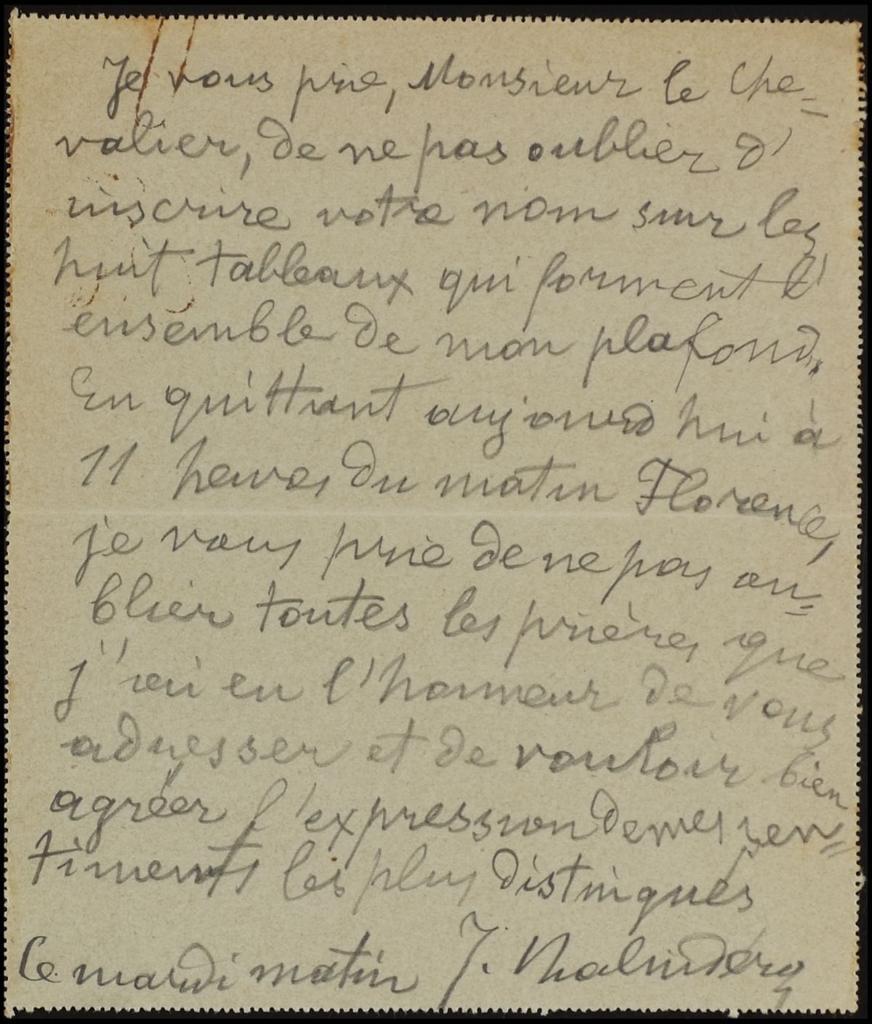 Je vous prie, Monsieur le Che=
valier, de ne pas oublier d'
inscrire votre nom sur les
huit tableaux qui forment l'
ensemble de mon plafond.
En quittant aujourd hui à
11 heures du matin Florence,
je vous prie de ne pas ou=
blier toutes les prières que
j'ai eu l'honneur de vous
adresser et de vouloir bien
agréer l'expression de mes sen=
timents les plus distingués
Ce mardi matin J.